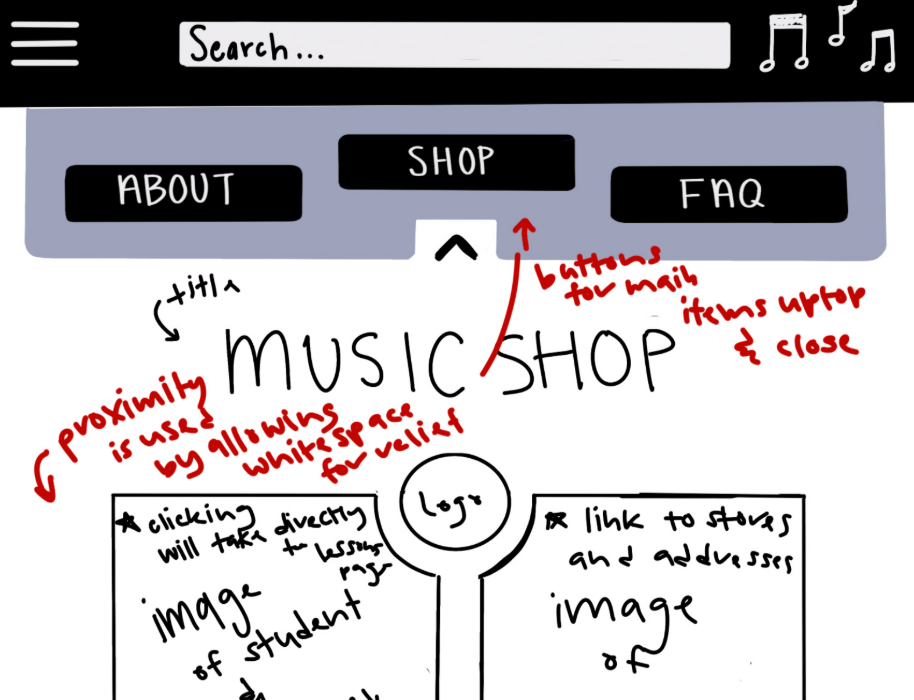 Search...
ABOUT
SHOP
FAQ
buttons
for main
items up top
& close
title
MUSIC SHOP
proximity
is used
by allowing
whitespace
for relief
logo
* clicking
will take directly
to lessons
page
image
of student
* link to stores
and addresses
image
of